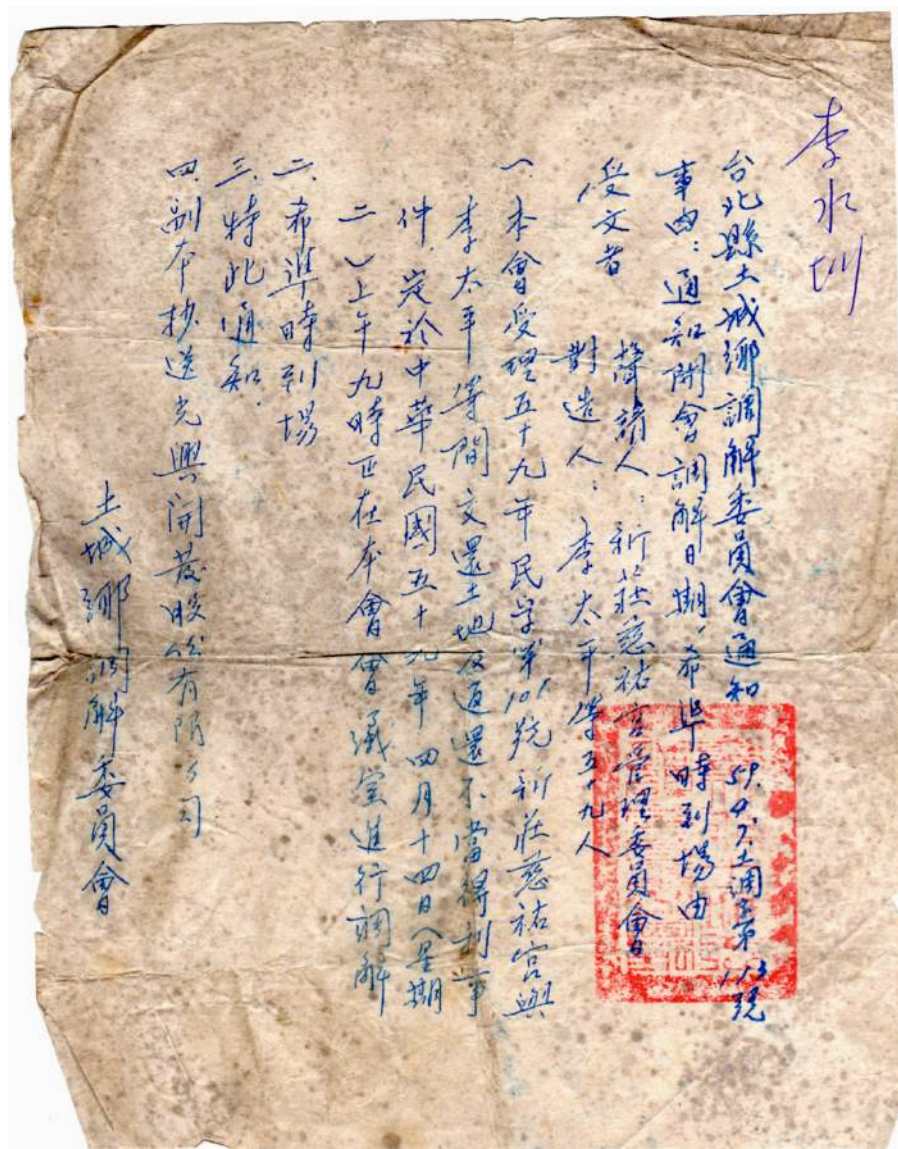 李水圳
台北縣土城鄉調解委員會通知 59.4.7.土調字第113號
事由：通知開會調解日期，希準時到場由
受文者 聲請人：新莊慈祐宮管理委員會
對造人：李太平等五十九人
一、本會受理五十九年民字第101號新莊慈祐宮與
李太平等間交還土地及返還不當得利事
件，定於中華民國五十九年四月十四日（星期
二）上午九時正在本會會議室進行調解
二、希準時到場
三、特此通知．
四、副本抄送光興開發股份有限公司
土城鄉調解委員會